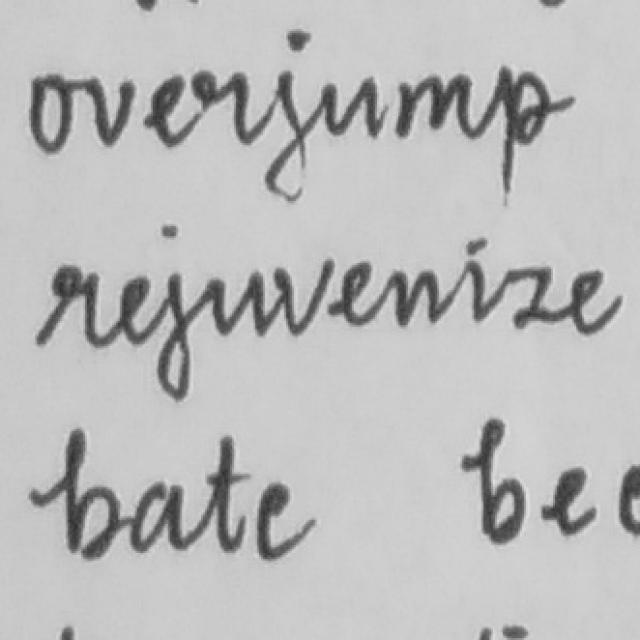 overjump
rejuvenize
bate